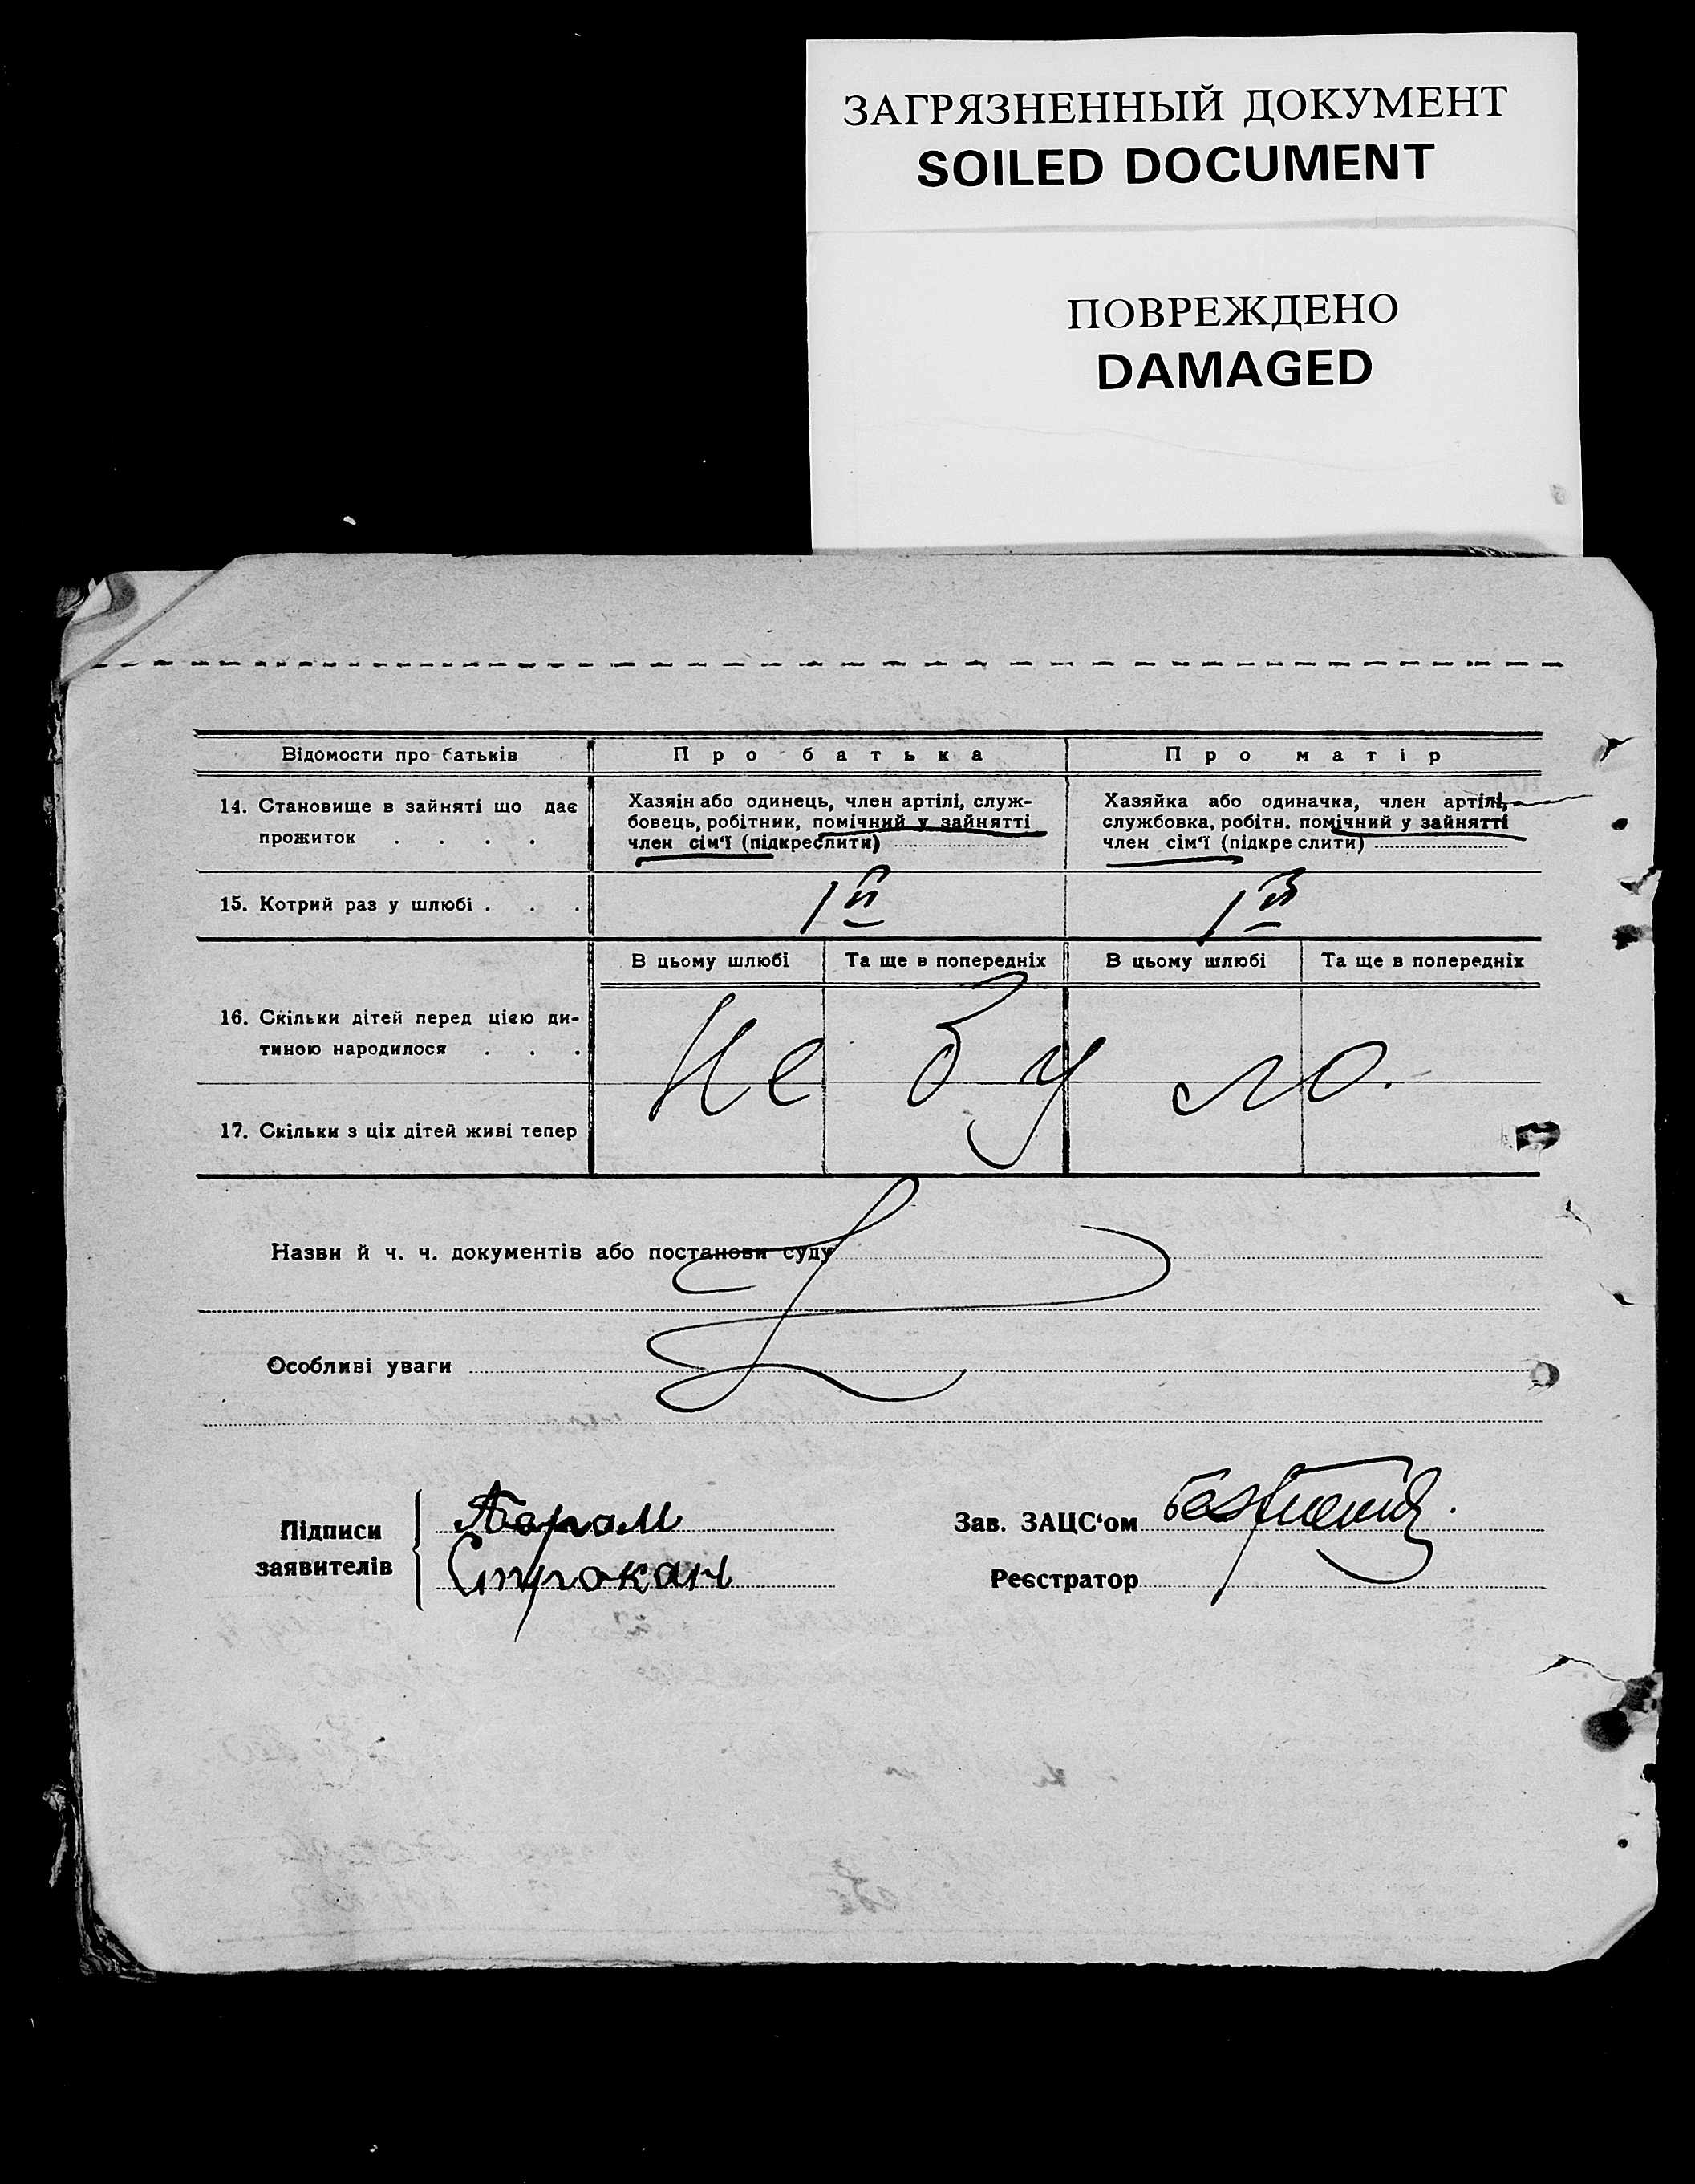 ЗАГРЯЗНЕННЫЙ ДОКУМЕНТ
SOILED DOCUMENT
ПОВРЕЖДЕНО
DAMAGED
Відомости про батьків
Про батька
Про матір
14. Становище в зайняті що дає
прожиток . . . .
Хазяін або одинець, член артілі, служ-
бовець, робітник, помічний у зайнятті
член сім‘ї (підкреслити)
Хазяйка або одиначка, член артілі,
службовка, робітн. помічний у зайнятті
член сім‘ї (підкреслити)
15. Котрий раз у шлюбі . . .
1й
1й
В цьому шлюбі
Та ще в попередніх
В цьому шлюбі
Та ще в попередніх
16. Скільки дітей перед цією ди-
тиною народилося . . .
Не було.
17. Скільки з ціх дітей живі тепер
Назви й ч. ч. документів або постанови суду
Особливі уваги
Підписи
заявителів
Строкач
Зав. ЗАЦС‘ом
Реєстратор